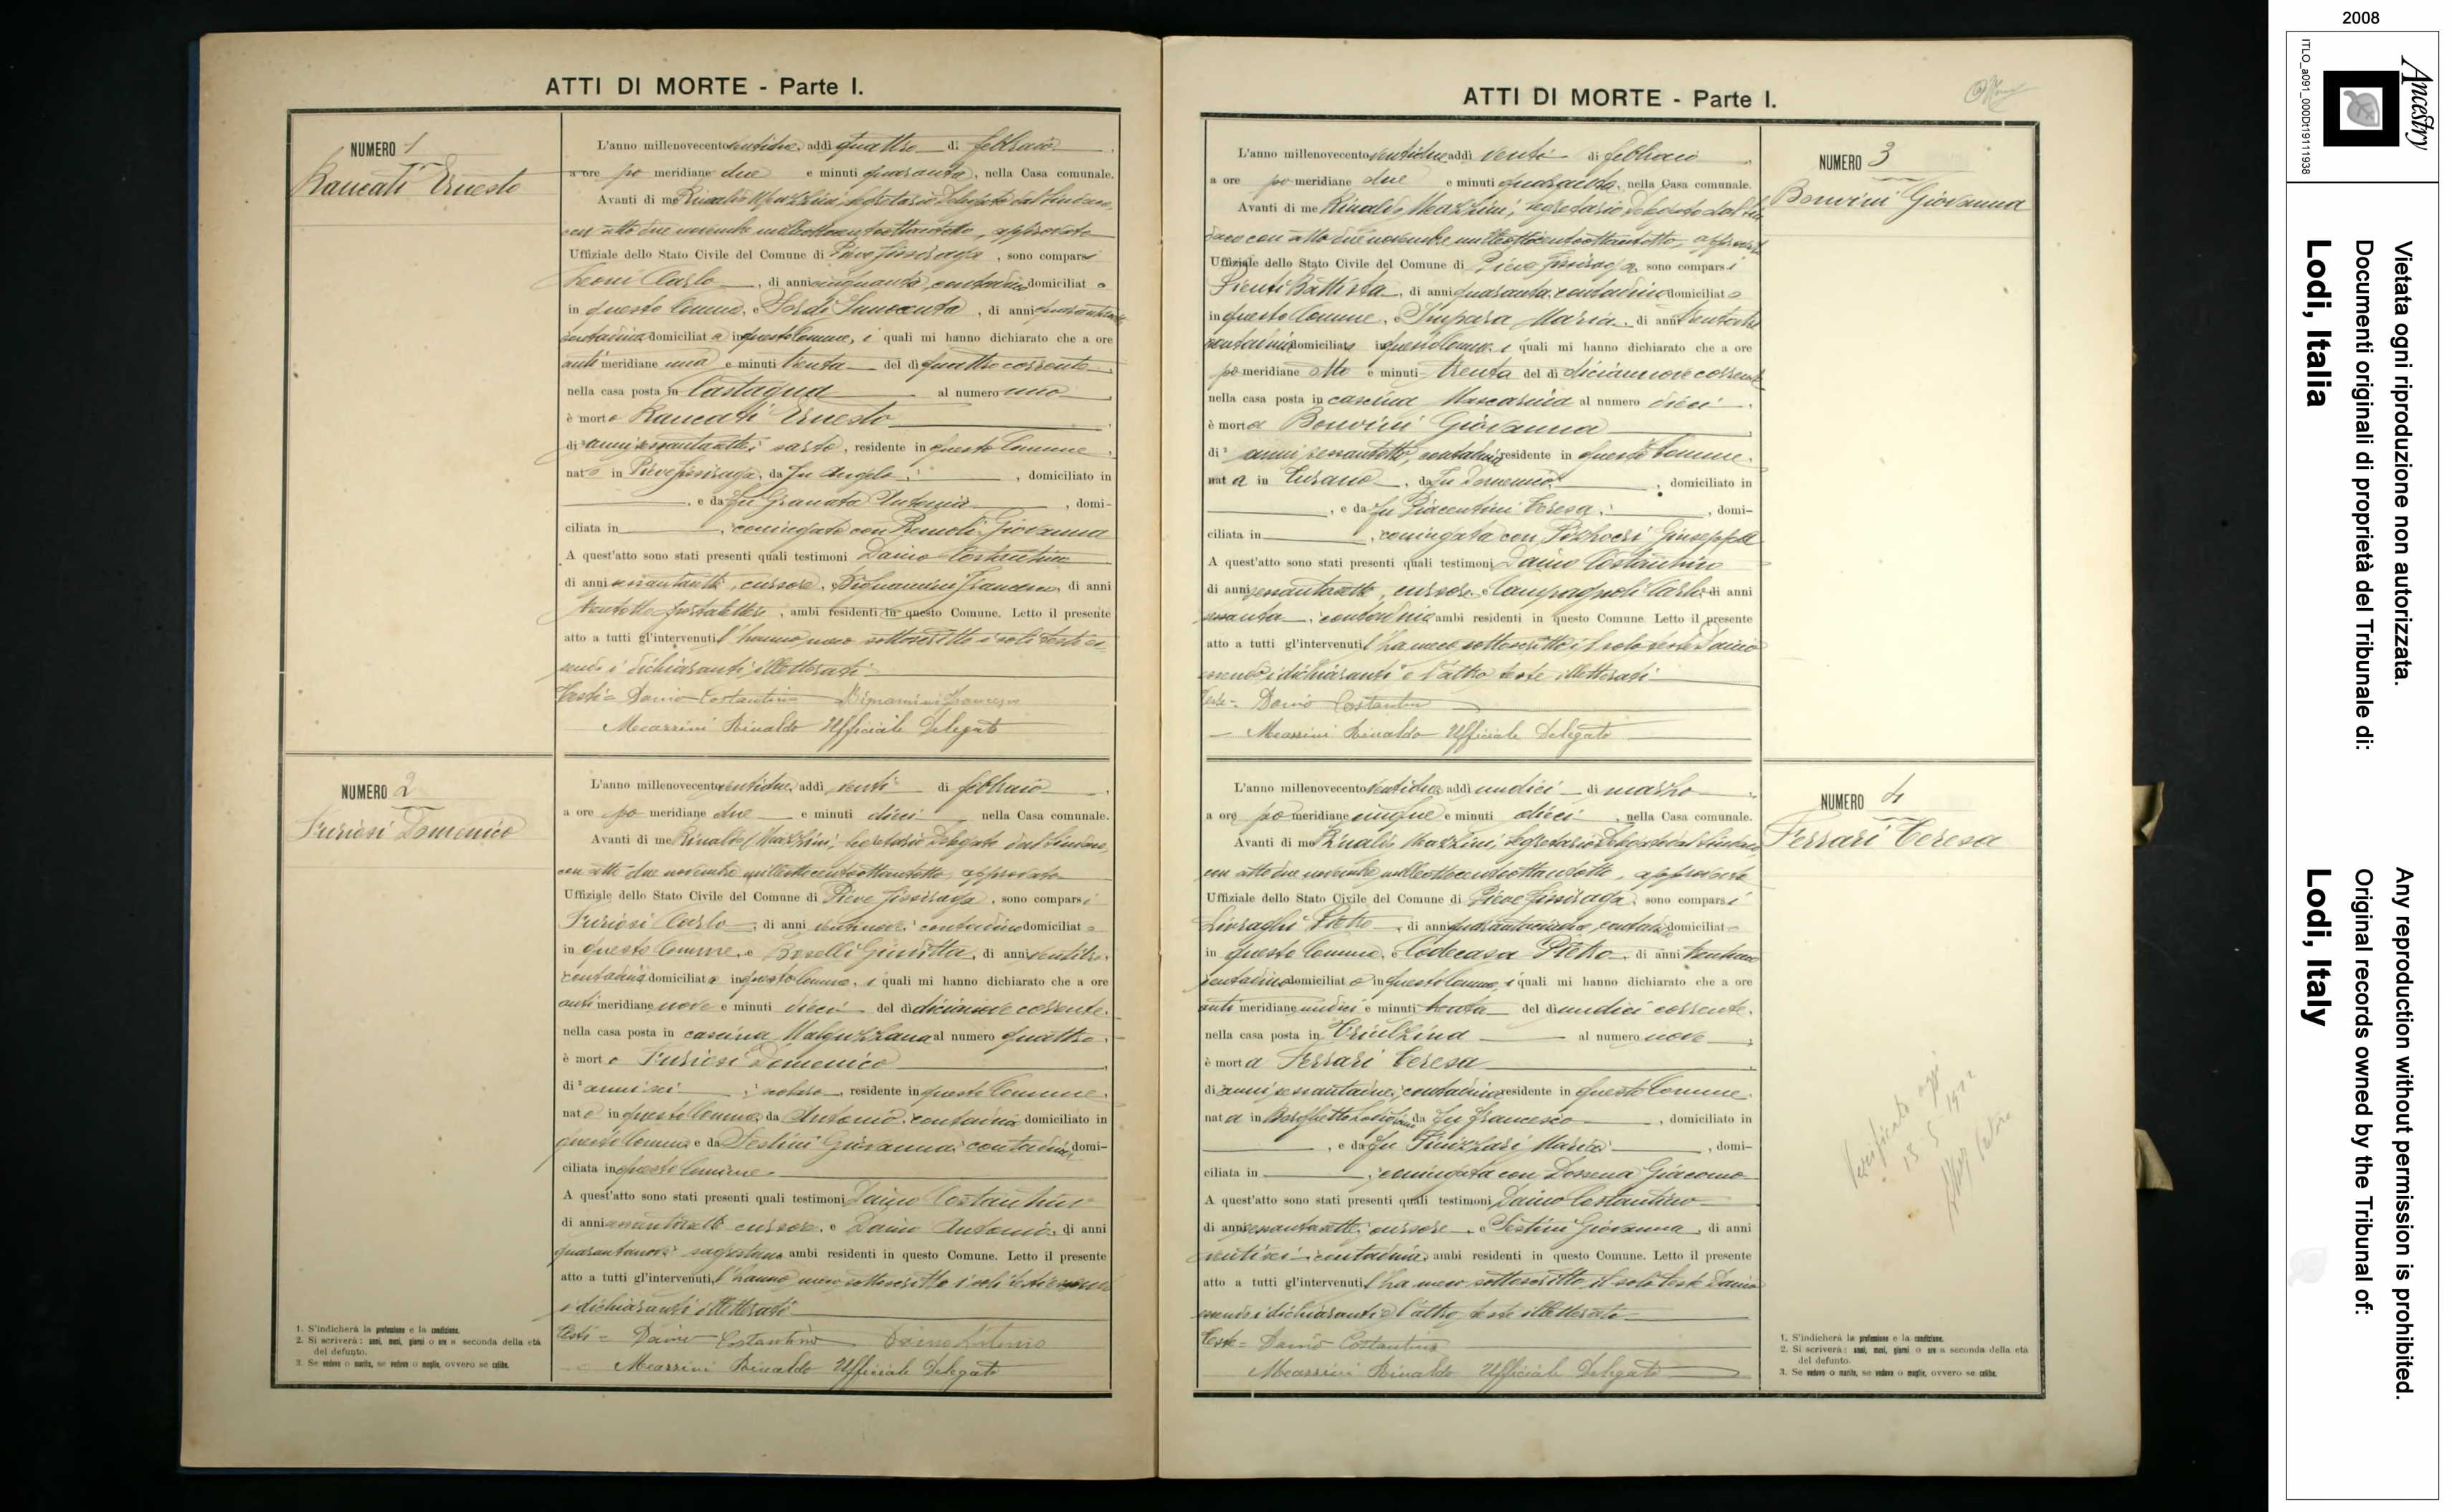 ATTI DI MORTE - Parte I.
NUMERO 1
Rancati Ernesto
L'anno millenovecentoventidue, addì quattro di febbraio,
a ore po meridiane due e minuti quaranta, nella Casa comunale.
Avanti di me Rinaldo Mazzini, segretario delegato dal Sindaco,
con atto due novembre milleottocentottantotto, approvato
Uffiziale dello Stato Civile del Comune di Pieve Fissiraga, sono comparsi
Leoni Carlo, di anni cinquanta, contadino domiciliato
in questo Comune, e Sordi Innocenta, di anni
contadina domiciliata in questo Comune, i quali mi hanno dichiarato che a ore
anti meridiane una e minuti trenta del dì quattro corrente,
nella casa posta in Castagna al numero uno,
è morto Rancati Ernesto,
di anni sessantasette, sarto, residente in questo Comune,
nato in Pieve Fissiraga, da fu Angelo, domiciliato in
, e da fu Granata Antonia, domi-
ciliata in , coniugato con Giovanna
A quest'atto sono stati presenti quali testimoni Daino Costantino
di anni sessantasette, cursore, e Bignamini Francesco, di anni
trentotto, portalettere, ambi residenti in questo Comune. Letto il presente
atto a tutti gl'intervenuti, l'hanno meco sottoscritto i soli testi es-
sendo i dichiaranti illetterati.
Testi = Daino Costantino Bignamini Francesco
Mazzini Rinaldo Ufficiale Delegato
NUMERO 2
Furiosi Domenico
L'anno millenovecentoventidue, addì venti di febbraio,
a ore po meridiane due e minuti dieci, nella Casa comunale.
Avanti di me Rinaldo Mazzini, segretario delegato dal Sindaco,
con atto due novembre milleottocentottantotto, approvato
Uffiziale dello Stato Civile del Comune di Pieve Fissiraga, sono comparsi
Furiosi Carlo, di anni ventinove, contadino domiciliato
in questo Comune, e Boselli Giuditta, di anni ventitre,
contadina domiciliata in questo Comune, i quali mi hanno dichiarato che a ore
anti meridiane nove e minuti dieci del dì diciannove corrente,
nella casa posta in cascina Malguzzana al numero quattro,
è morto Furiosi Domenico,
di anni sei, scolaro, residente in questo Comune,
nato in questo Comune, da Antonio, contadino domiciliato in
questo Comune, e da Sestini Giovanna, contadina, domi-
ciliata in questo Comune.
A quest'atto sono stati presenti quali testimoni Daino Costantino
di anni sessantasette, cursore, e Daino Antonio, di anni
quarantanove, sagrestano, ambi residenti in questo Comune. Letto il presente
atto a tutti gl'intervenuti, l'hanno meco sottoscritto i soli testi essendo
i dichiaranti illetterati
Testi = Daino Costantino Daino Antonio
Mazzini Rinaldo Ufficiale Delegato
1. S'indicherà la professione e la condizione.
2. Si scriverà: anni, mesi, giorni o ore a seconda della età
del defunto.
3. Se vedovo o marito, se vedova o moglie, ovvero se celibe.
ATTI DI MORTE - Parte I.
NUMERO 3
Bonvini Giovanna
L'anno millenovecentoventidue, addì venti di febbraio,
a ore po meridiane due e minuti quaranta, nella Casa comunale.
Avanti di me Rinaldo Mazzini, segretario delegato dal Sin-
daco con atto due novembre milleottocentottantotto, approvato
Uffiziale dello Stato Civile del Comune di Pieve Fissiraga, sono comparsi
Battista, di anni quaranta, contadino domiciliato
in questo Comune, e Maria, di anni trentatre
contadina domiciliata in questo Comune, i quali mi hanno dichiarato che a ore
po meridiane otto e minuti trenta del dì diciannove corrente
nella casa posta in cascina Mascarina al numero dieci,
è morta Bonvini Giovanna,
di anni sessantotto, contadina residente in questo Comune,
nata in Turano, da fu Domenico, domiciliato in
, e da fu Piacentini Teresa, domi-
ciliata in , coniugata con Pozzoni Giuseppe
A quest'atto sono stati presenti quali testimoni Daino Costantino
di anni sessantasette, cursore, e Campagnoli Carlo, di anni
sessanta, contadino, ambi residenti in questo Comune. Letto il presente
atto a tutti gl'intervenuti, l'ha meco sottoscritto il solo teste Daino
essendo i dichiaranti e l'altro teste illetterati
Teste = Daino Costantino
Mazzini Rinaldo Ufficiale Delegato
NUMERO 4
Ferrari Teresa
L'anno millenovecentoventidue, addì undici di marzo,
a ore po meridiane cinque e minuti dieci, nella Casa comunale.
Avanti di me Rinaldo Mazzini, segretario delegato dal Sindaco,
con atto due novembre milleottocentottantotto, approvato
Uffiziale dello Stato Civile del Comune di Pieve Fissiraga, sono comparsi
Livraghi Pietro, di anni, contadino domiciliato
in questo Comune, e Codecasa Pietro, di anni
contadino domiciliato in questo Comune, i quali mi hanno dichiarato che a ore
anti meridiane undici e minuti trenta del dì undici corrente,
nella casa posta in Triulzina al numero nove,
è morta Ferrari Teresa,
di anni, contadina residente in questo Comune,
nata in Borghetto Lodigiano da fu Francesco, domiciliato in
, e da fu Maria, domi-
ciliata in , coniugata con Dossena Giacomo
A quest'atto sono stati presenti quali testimoni Daino Costantino
di anni sessantasette, cursore, e Sestini Giovanna, di anni
ventisei, contadina, ambi residenti in questo Comune. Letto il presente
atto a tutti gl'intervenuti, l'ha meco sottoscritto il solo teste Daino
essendo i dichiaranti e l'altro teste illetterati
Teste = Daino Costantino
Mazzini Rinaldo Ufficiale Delegato
Verificato oggi
1. S'indicherà la professione e la condizione.
2. Si scriverà: anni, mesi, giorni o ore a seconda della età
del defunto.
3. Se vedovo o marito, se vedova o moglie, ovvero se celibe.
2008
Ancestry
ITLO_a091_000Dt19111938
Vietata ogni riproduzione non autorizzata.
Documenti originali di proprietà del Tribunale di:
Lodi, Italia
Any reproduction without permission is prohibited.
Original records owned by the Tribunal of:
Lodi, Italy